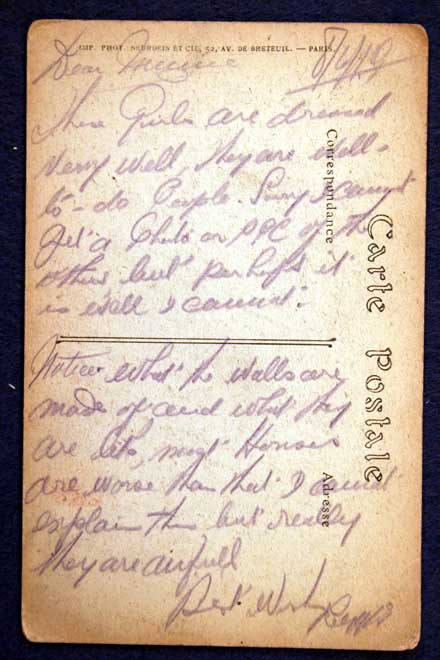 IMP. PHOT. NEURDEIN ET CIE, 52, AV. DE BRETEUIL. — PARIS
Dear
These Girls are dressed
very well, they are well-
to-do People. Sorry I cannot
get a Photo or PPC of the
other but perhaps it
is well I cannot.
Correspondance
Carte Postale
Notice what the walls are
made of and what they
are like, most Houses
are worse than that I cannot
explain them but really
they are awfull
Best Wishes
Adresse